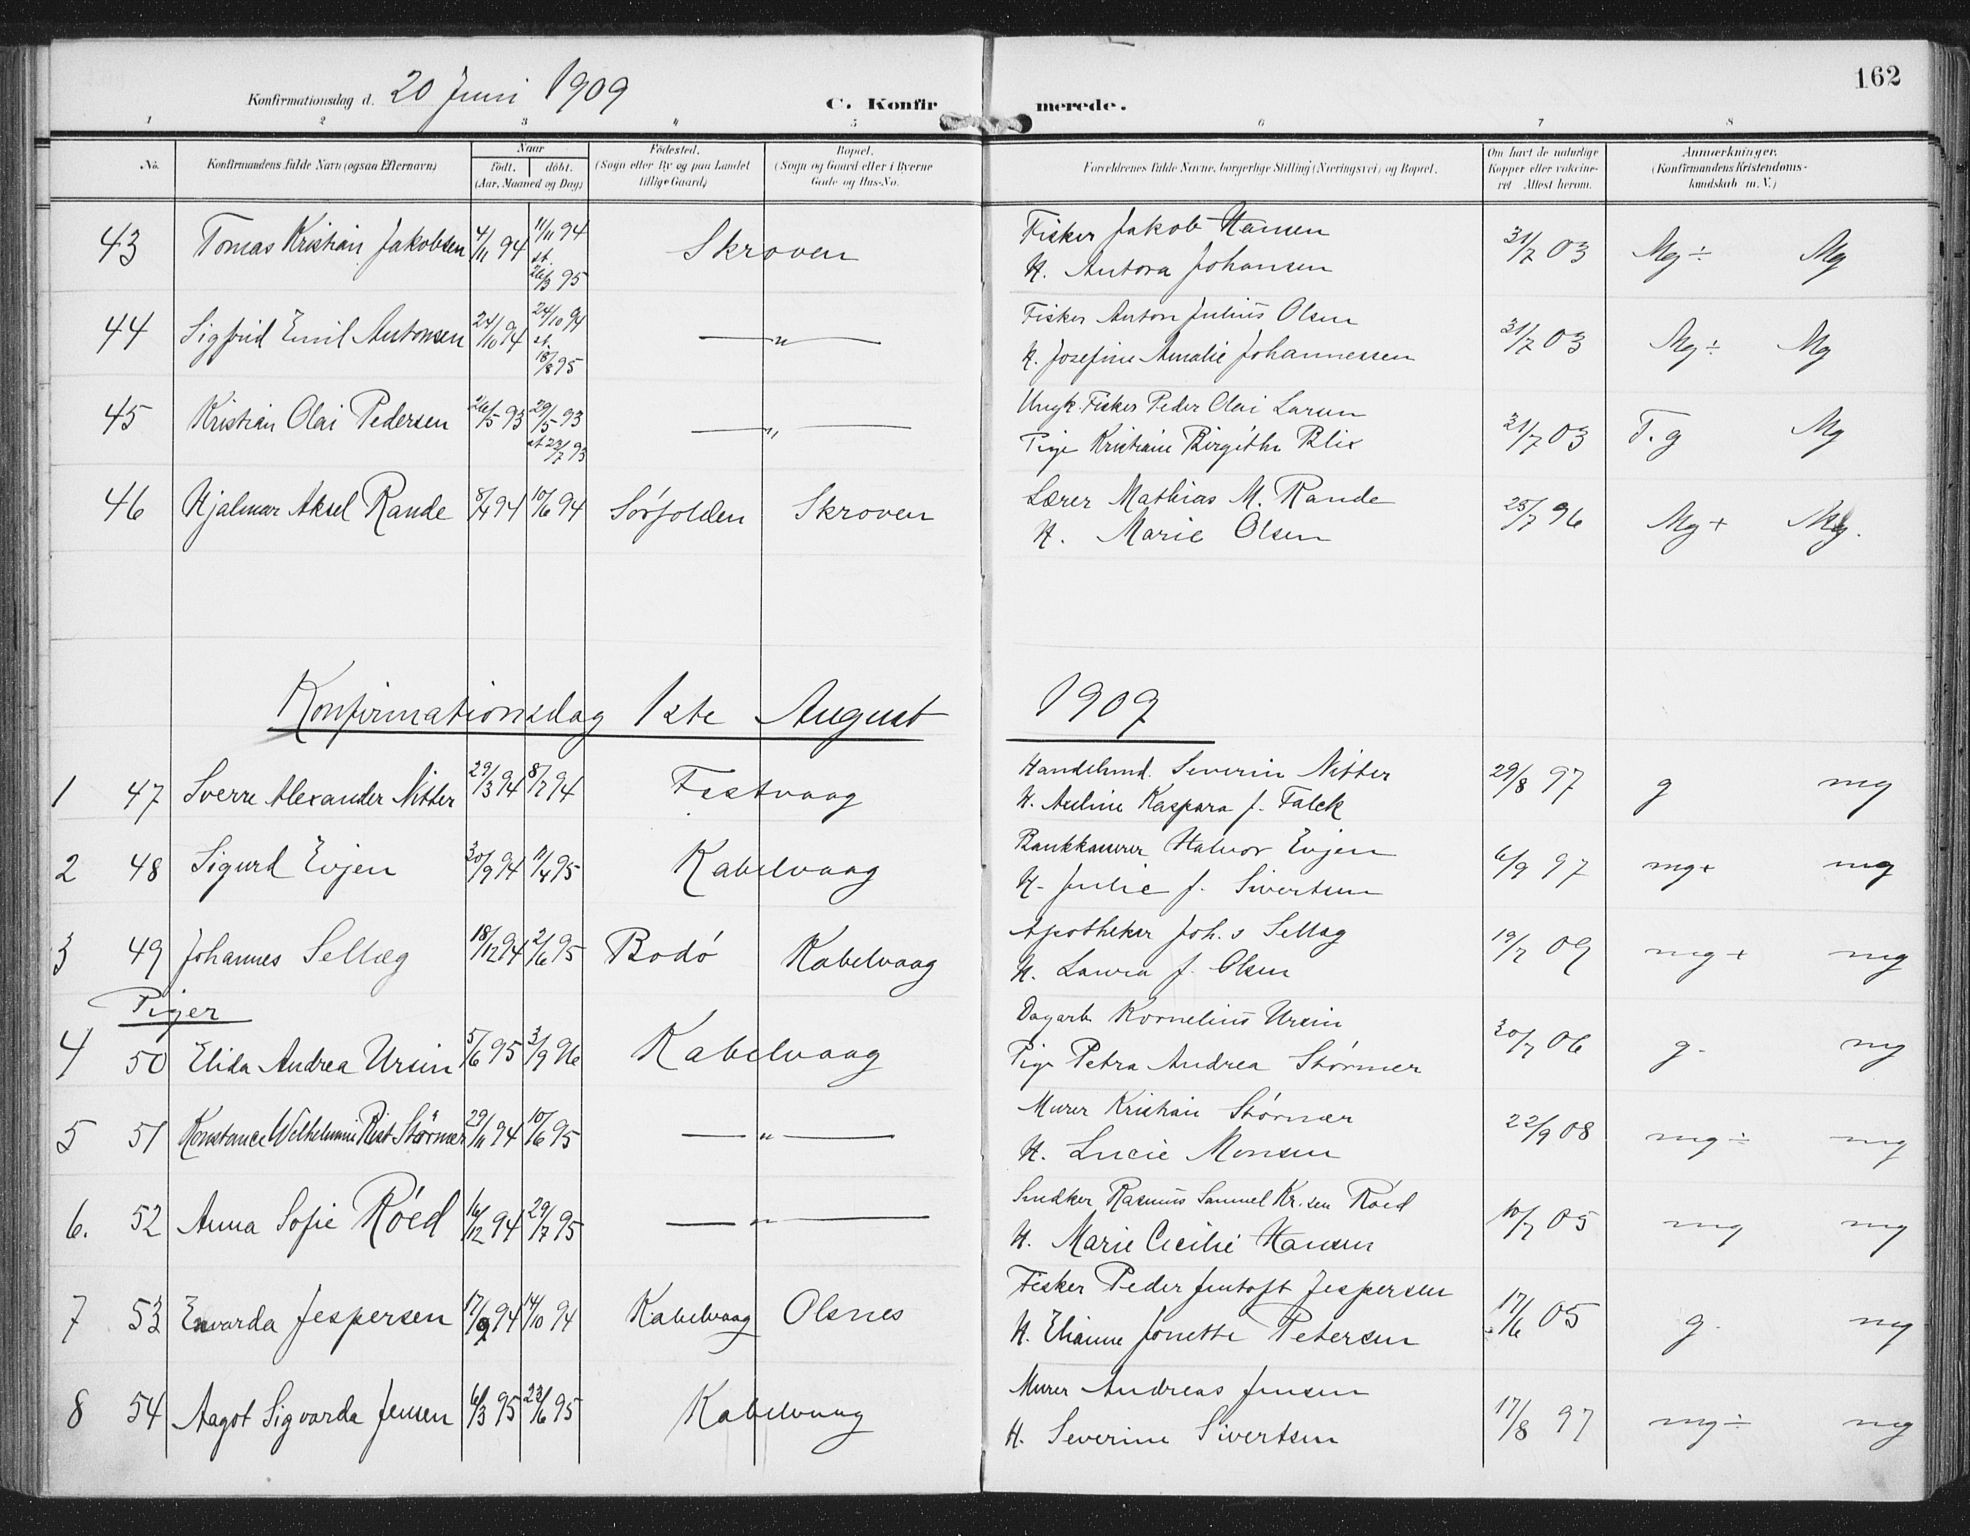 162
Konfirmationsdag d. 20 Juni 1909
C. Konfirmerede.
1 2 3 4 5 6 7 8
No. Konfirmandens fulde Navn (ogsaa Efternavn) Naar født. døbt. (Aar, Maaned og Dag) Fødested. (Sogn eller By og paa Landet tillige Gaard) Bopæl. (Sogn og Gaard eller i Byerne Gade og Hus-No. Forældrenes fulde Navne, borgerlige Stilling (Næringsvei) og Bopæl. Om havt de naturlige Kopper eller vakcineret. Attest herom. Anmærkninger. (Konfirmandens Kristendomskundskab m. V.)
43 Tomas Kristian Jakobsen 4/11 94 11/11 94 st. 26/3 95 Skroven Fisker Jakob Hansen 31/7 03 Mg ÷ Mg
H. Antora Johansen
44 Sigfrid Emil Antonsen 24/10 94 24/10 94 st. 18/8 95 — " — Fisker Anton Julius Olsen 31/7 03 Mg ÷ Mg
H. Josefine Amalie Johannessen
45 Kristian Olai Pedersen 26/5 93 29/5 93 st. 23/7 93 — " — Ungk. Fisker Peder Olai Larsen 21/7 03 T. g Mg
Pige Kristiane Birgithe Blix
46 Hjalmar Aksel Rande 8/4 94 10/6 94 Sørfolden Skroven Lærer Mathias M. Rande 25/7 96 Mg + Mg.
H. Marie Olsen
Konfirmationsdag 1ste August 1909
1 47 Sverre Alexander Nitter 29/3 94 8/7 94 Festvaag Handelsmd. Severin Nitter 29/8 97 g mg
H. Auline Kaspara f. Falck
2 48 Sigurd Evjen 30/9 94 11/4 95 Kabelvaag Bankkasserer Halvor Evjen 6/9 97 mg + mg
H. Julie f. Sivertsen
3 49 Johannes Sellæg 18/12 94 2/6 95 Bodø Kabelvaag Apotheker Joh. s Sellæg 19/7 09 mg + mg
H. Laura f. Olsen
Piger
4 50 Elida Andrea Ursin 5/6 95 3/9 96 Kabelvaag Dagarb Kornelius Ursin 30/7 06 g. mg
Pige Petra Andrea Størmer
5 51 Konstance Wilhelmine Rist Størmer 29/11 94 10/6 95 — " — Murer Kristian Størmer 22/9 08 mg ÷ mg
H. Lucie Monsen
6. 52 Anna Sofie Røed 16/12 94 29/7 95 — " — Snedker Rasmus Samuel Kr.sen Røed 10/7 05 mg mg
H. Marie Cecilie Hansen
7 53 Envarda Jespersen 17/9 94 14/10 94 Kabelvaag Olsnes Fisker Peder Jentoft Jespersen 17/6 05 g. mg
H. Elianne Jonette Petersen
8 54 Aagot Sigvarda Jensen 6/3 95 23/6 95 Kabelvaag Murer Andreas Jensen 17/8 97 mg ÷ mg
H. Severine Sivertsen